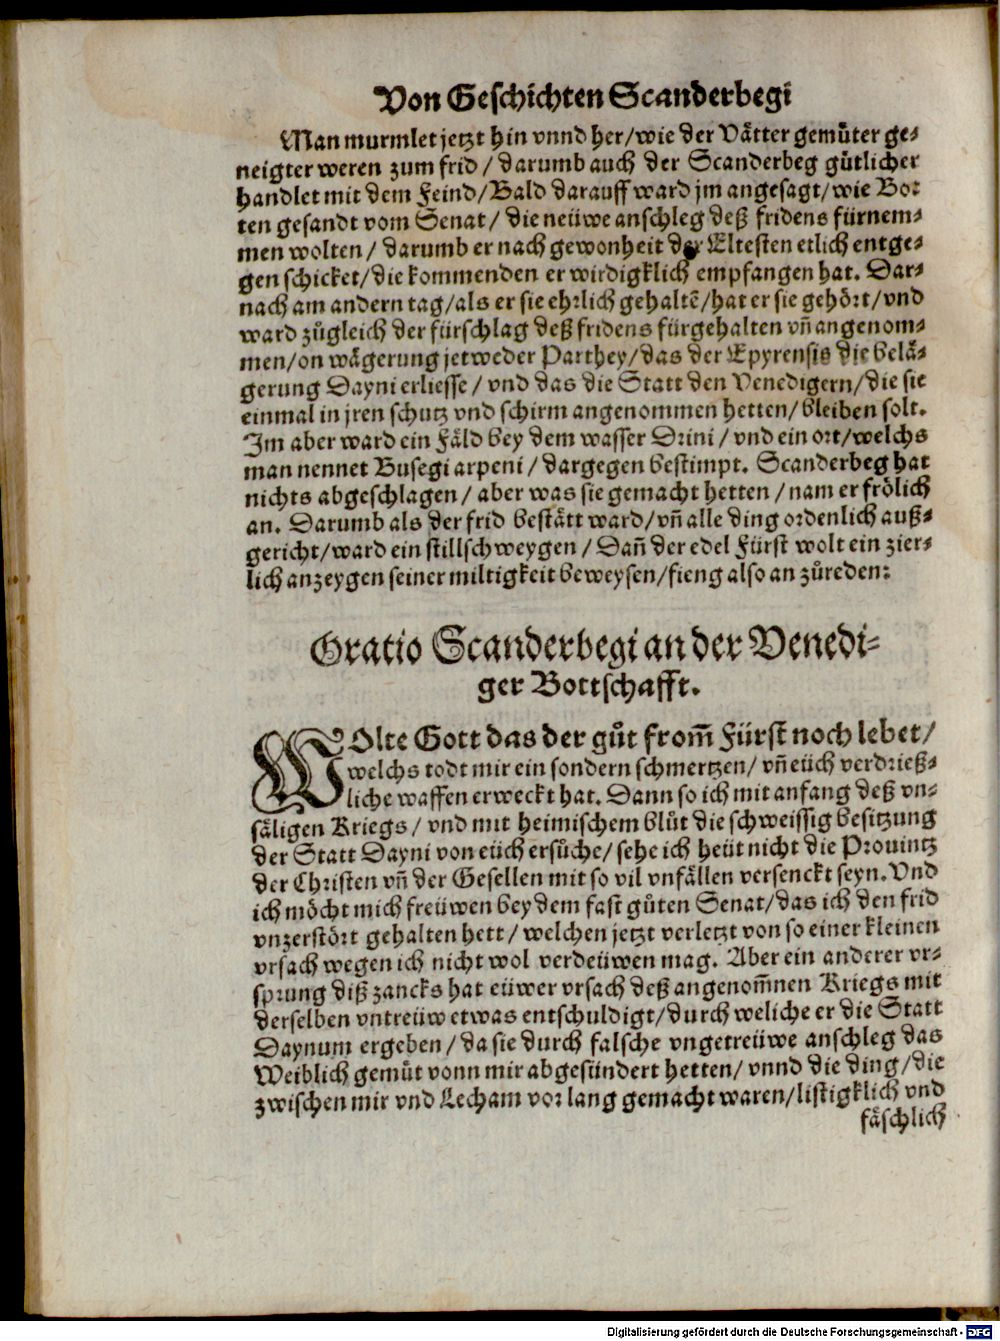 Von Geschichten Scanderbegi
Man murmlet jetzt hin vnnd her/wie der Vätter gemüter ge-
neigter weren zum frid / darumb auch der Scanderbeg gütlicher
handlet mit dem Feind/Bald darauff ward jm angesagt/wie Bot
ten gesandt vom Senat / die neüwe anschleg deß fridens fürnem-
men wolten / darumb er nach gewonheit der Eltesten etlich entge-
gen schicket/die kommenden er wirdigklich empfangen hat. Dar-
nach am andern tag/als er sie ehrlich gehaltē/hat er sie gehört/vnd
ward zůgleich der fürschlag deß fridens fürgehalten vñ angenom-
men/on wägerung jetweder Parthey/das der Epyrensis die belä-
gerung Dayni erliesse / vnd das die Statt den Venedigern/die sie
einmal in jren schutz vnd schirm angenommen hetten/bleiben solt.
Im aber ward ein Fäld bey dem wasser Drini / vnd ein ort/welchs
man nennet Busegi arpeni / dargegen bestimpt. Scanderbeg hat
nichts abgeschlagen / aber was sie gemacht hetten / nam er frölich
an. Darumb als der frid bestätt ward/vñ alle ding ordenlich auß-
gericht/ward ein stillschweygen / Dañ der edel Fürst wolt ein zier-
lich anzeygen seiner miltigkeit beweysen/fieng also an zůreden:
Oratio Scanderbegi an der Venedi-
ger Bottschafft.
WOlte Gott das der gůt from̃ Fürst noch lebet/
welchs todt mir ein sondern schmertzen/ vñ eüch verdrieß-
liche waffen erweckt hat. Dann so ich mit anfang deß vn-
säligen Kriegs / vnd mit heimischem blůt die schweissig besitzung
der Statt Dayni von eüch ersůche/ sehe ich heüt nicht die Prouintz
der Christen vñ der Gesellen mit so vil vnfällen versenckt seyn. Vnd
ich möcht mich freüwen bey dem fast gůten Senat/das ich den frid
vnzerstört gehalten hett / welchen jetzt verletzt von so einer kleinen
vrsach wegen ich nicht wol verdeüwen mag. Aber ein anderer vr-
sprung diß zancks hat eüwer vrsach deß angenom̃nen Kriegs mit
derselben vntreüw etwas entschuldigt/durch weliche er die Statt
Daynum ergeben / da sie durch falsche vngetreüwe anschleg das
Weiblich gemüt vonn mir abgesündert hetten/ vnnd die ding/die
zwischen mir vnd Lecham vor lang gemacht waren/listigklich vnd
fäschlich
Digitalisierung gefördert durch die Deutsche Forschungsgemeinschaft - DFG